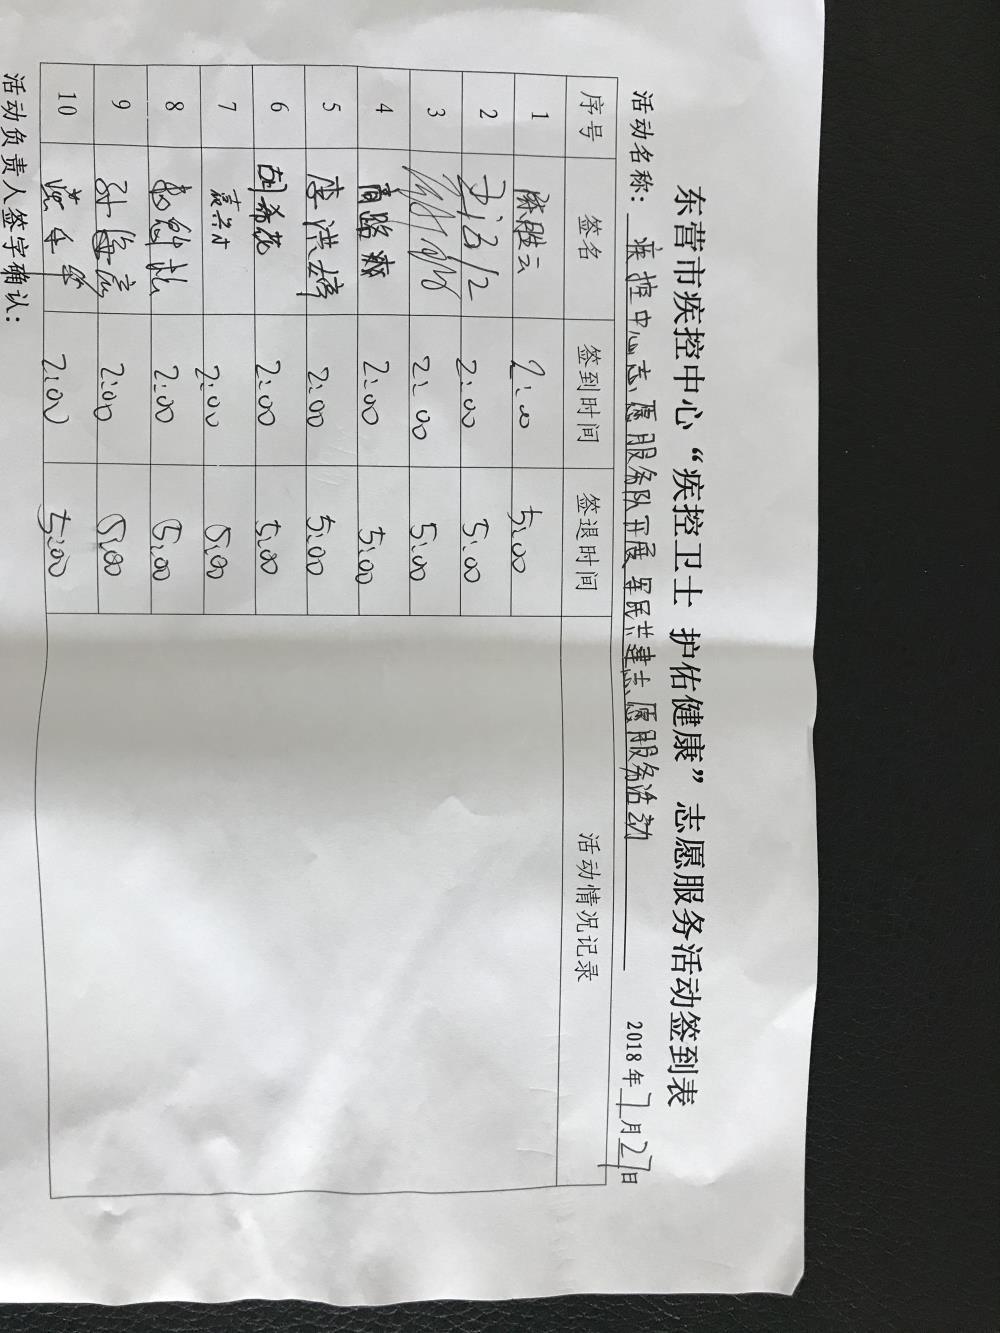 东营市疾控中心“疾控卫士 护佑健康”志愿服务活动签到表
活动名称：疾控中心志愿服务队开展军民共建志愿服务活动 2018年7月27日
序号 签名 签到时间 签退时间 活动情况记录
1 2:00 5:00
2 2:00 5:00
3 2:00 5:00
4 高路 2:00 5:00
5 李洪 2:00 5:00
6 2:00 5:00
7 2:00 5:00
8 2:00 5:00
9 孙海 2:00 5:00
10 2:00 5:00
活动负责人签字确认：